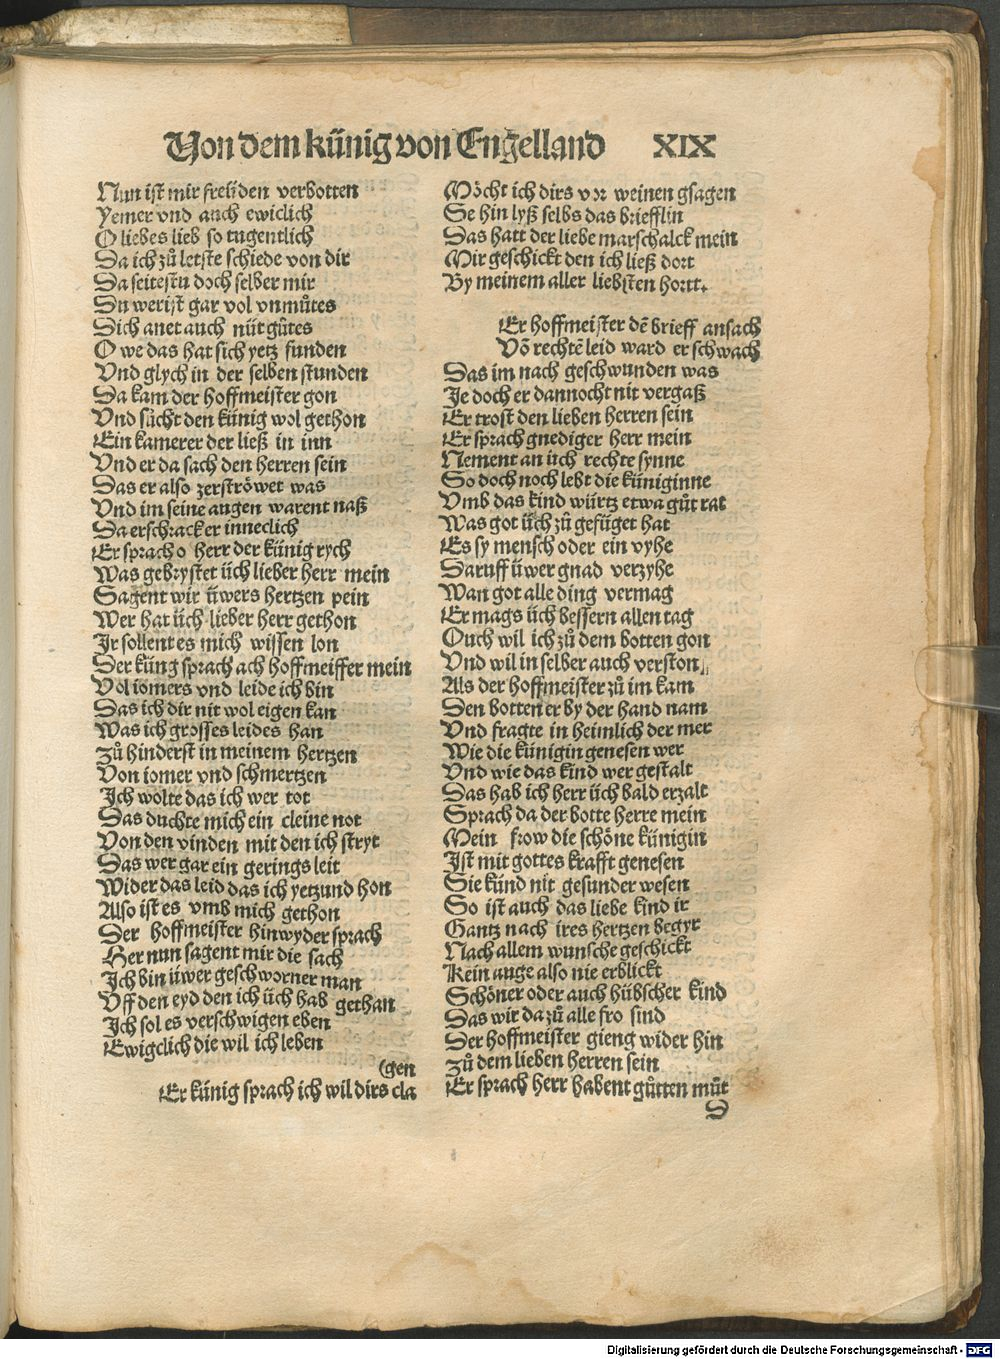 Von dem künig von Engelland XIX
Nun ist mir freüden verbotten
Yemer vnd auch ewiclich
O liebes lieb so tugentlich
Da ich zů letste schiede von dir
Da seitestu doch selber mir
Du werist gar vol vnmůtes
Dich anet auch nüt gůtes
O we das hat sich yetz funden
Vnd glych in der selben stunden
Da kam der hoffmeister gon
Vnd sůcht den künig wol gethon
Ein kamerer der ließ in inn
Vnd er da sach den herren sein
Das er also zerströwet was
Vnd im seine augen warent naß
Da erschrack er inneclich
Er sprach o herr der künig rych
Was gebrystet üch lieber herr mein
Sagent wir üwers hertzen pein
Wer hat üch lieber herr gethon
Ir sollent es mich wissen lon
Der küng sprach ach hoffmeiffer mein
Vol iomers vnd leide ich bin
Das ich dir nit wol eigen kan
Was ich grosses leides han
Zů hinderst in meinem hertzen
Von iomer vnd schmertzen
Ich wolte das ich wer tot
Das duchte mich ein cleine not
Von den vinden mit den ich stryt
Das wer gar ein gerings leit
Wider das leid das ich yetzund hon
Also ist es vmb mich gethon
Der hoffmeister hinwyder sprach
Her nun sagent mir die sach
Ich bin üwer geschworner man
Vff den eyd den ich üch hab gethan
Ich sol es verschwigen eben
Ewigclich die wil ich leben
(gen
Er künig sprach ich wil dirs cla
Möcht ich dirs vor weinen gsagen
Se hin lyß selbs das briefflin
Das hatt der liebe marschalck mein
Mir geschickt den ich ließ dort
By meinem aller liebsten hortt.
Er hoffmeister dē brieff ansach
Vō rechtē leid ward er schwach
Das im nach geschwunden was
Je doch er dannocht nit vergaß
Er trost den lieben herren sein
Er sprach gnediger herr mein
Nement an üch rechte synne
So doch noch lebt die küniginne
Vmb das kind würtz etwa gůt rat
Was got üch zů gefüget hat
Es sy mensch oder ein vyhe
Daruff üwer gnad verzyhe
Wan got alle ding vermag
Er mags üch bessern allen tag
Ouch wil ich zů dem botten gon
Vnd wil in selber auch verston
Als der hoffmeister zů im kam
Den botten er by der hand nam
Vnd fragte in heimlich der mer
Wie die künigin genesen wer
Vnd wie das kind wer gestalt
Das hab ich herr üch bald erzalt
Sprach da der botte herre mein
Mein frow die schöne künigin
Ist mit gottes krafft genesen
Sie künd nit gesunder wesen
So ist auch das liebe kind ir
Gantz nach ires hertzen begyr
Nach allem wunsche geschickt
Kein auge also nie erblickt
Schöner oder auch hübscher kind
Das wir da zů alle fro sind
Der hoffmeister gieng wider hin
Zů dem lieben herren sein
Er sprach herr habent gůtten můt
D
Digitalisierung gefördert durch die Deutsche Forschungsgemeinschaft - DFG